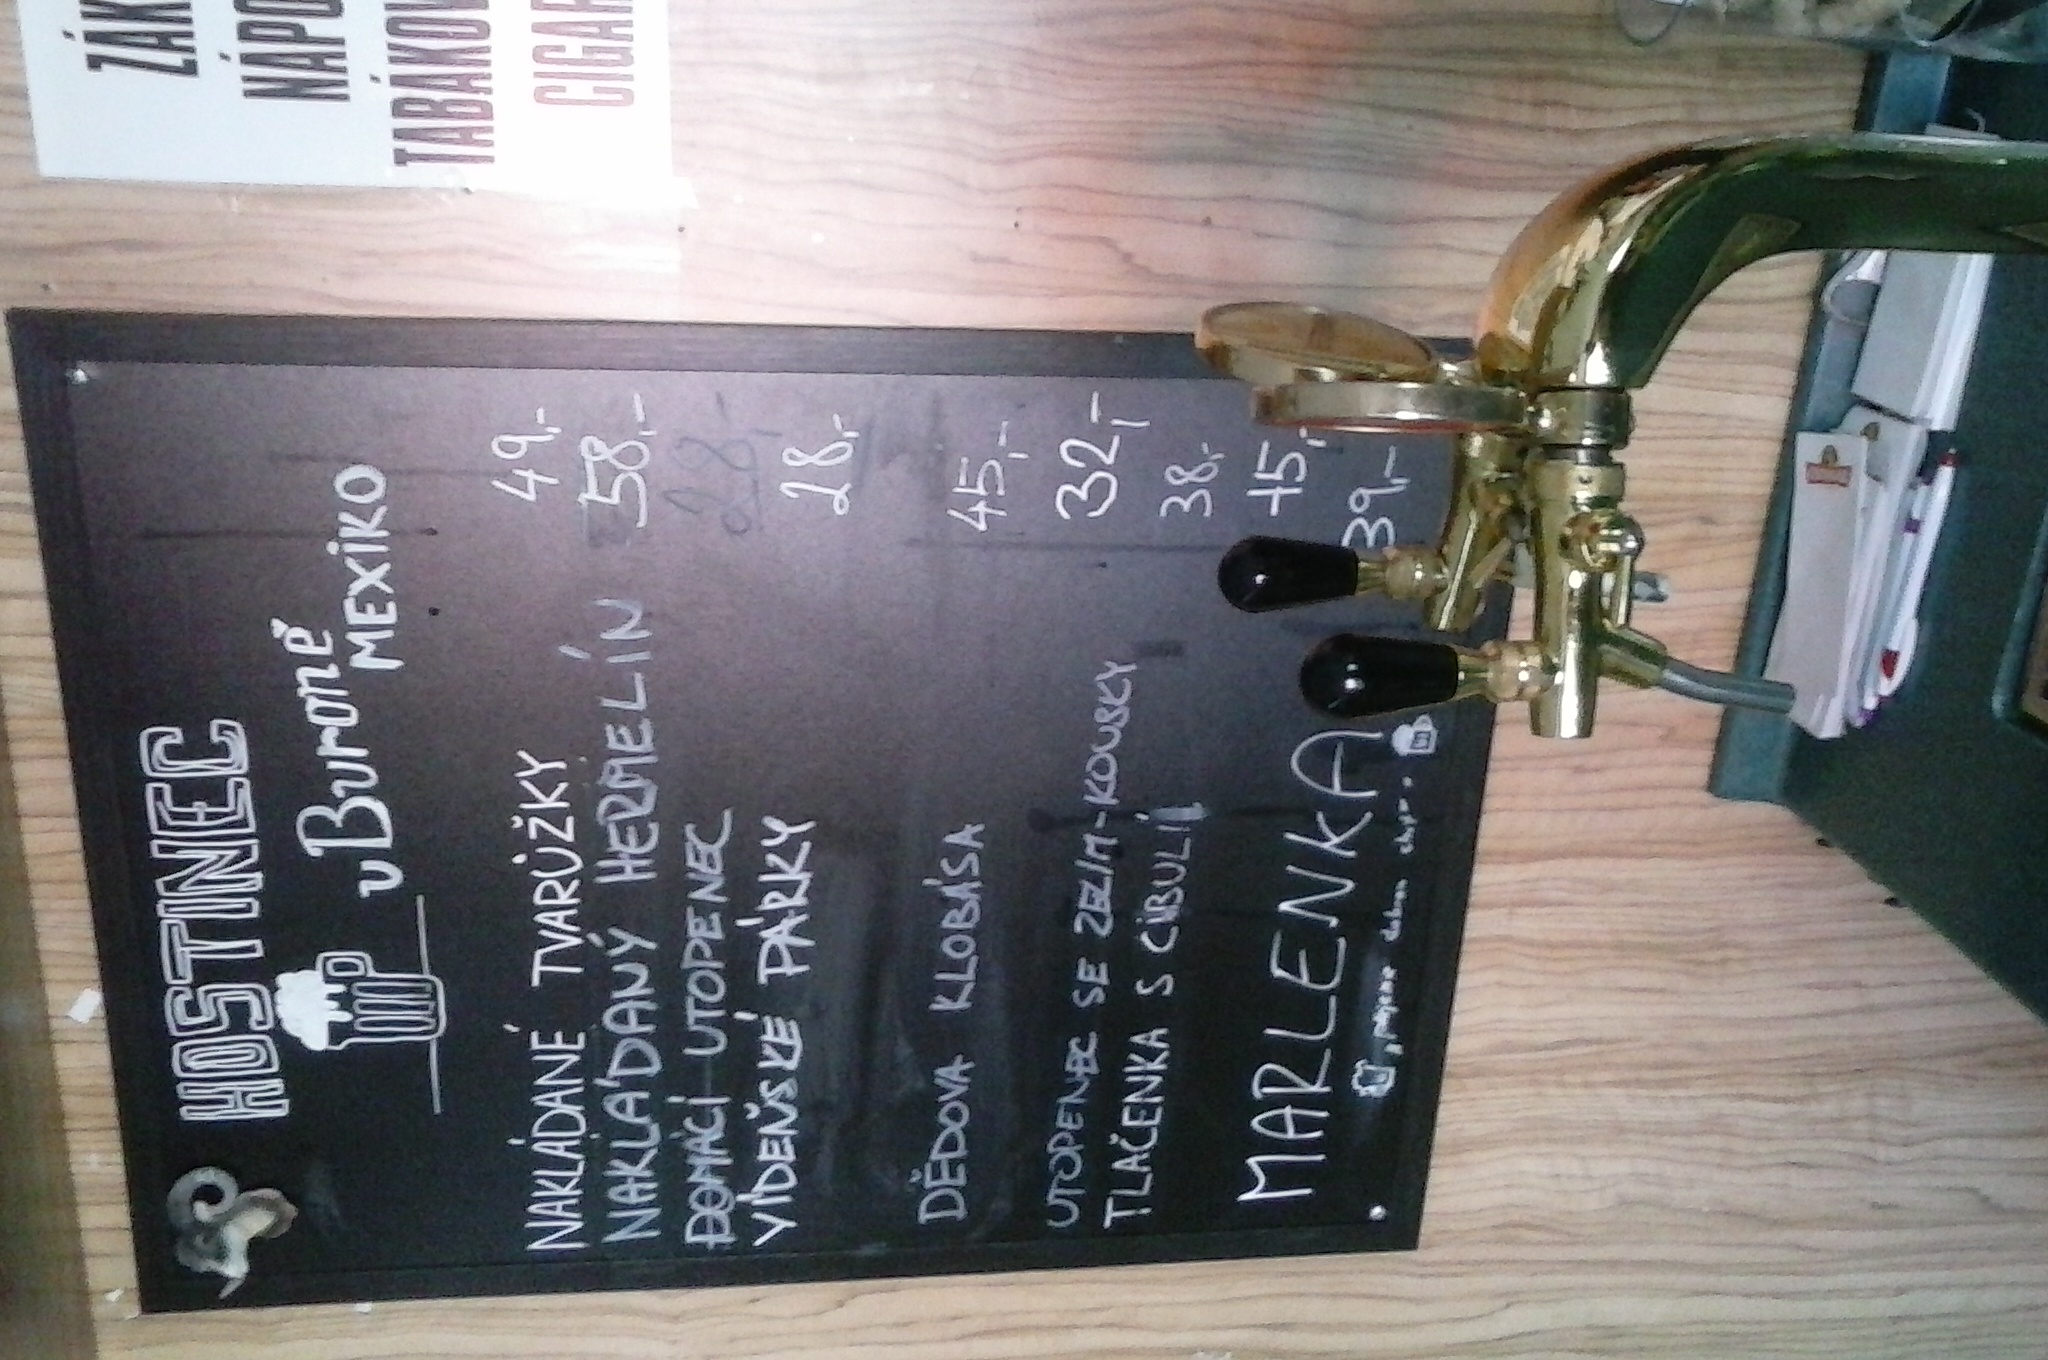 ZÁK
NÁPO
TABÁKOV
CIGAR
HOSTINEC
U Buroně
MEXIKO
NAKLÁDANÉ TVARŮŽKY 49,-
NAKLÁDANÝ HERMELÍN 58,-
DOMÁCÍ UTOPENEC 28,-
VÍDEŇSKÉ PÁRKY 28,-
DĚDOVA KLOBÁSA 45,-
UTOPENEC SE ZELÍM-KOUSKY 32,-
TLAČENKA S CIBULÍ 38,-
MARLENKA 45,-
39,-